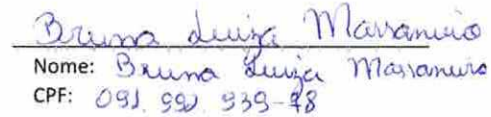 Bruna Luiza Massaneiro
Nome: Bruna Luiza Massaneiro
CPF: 091.992.939-78